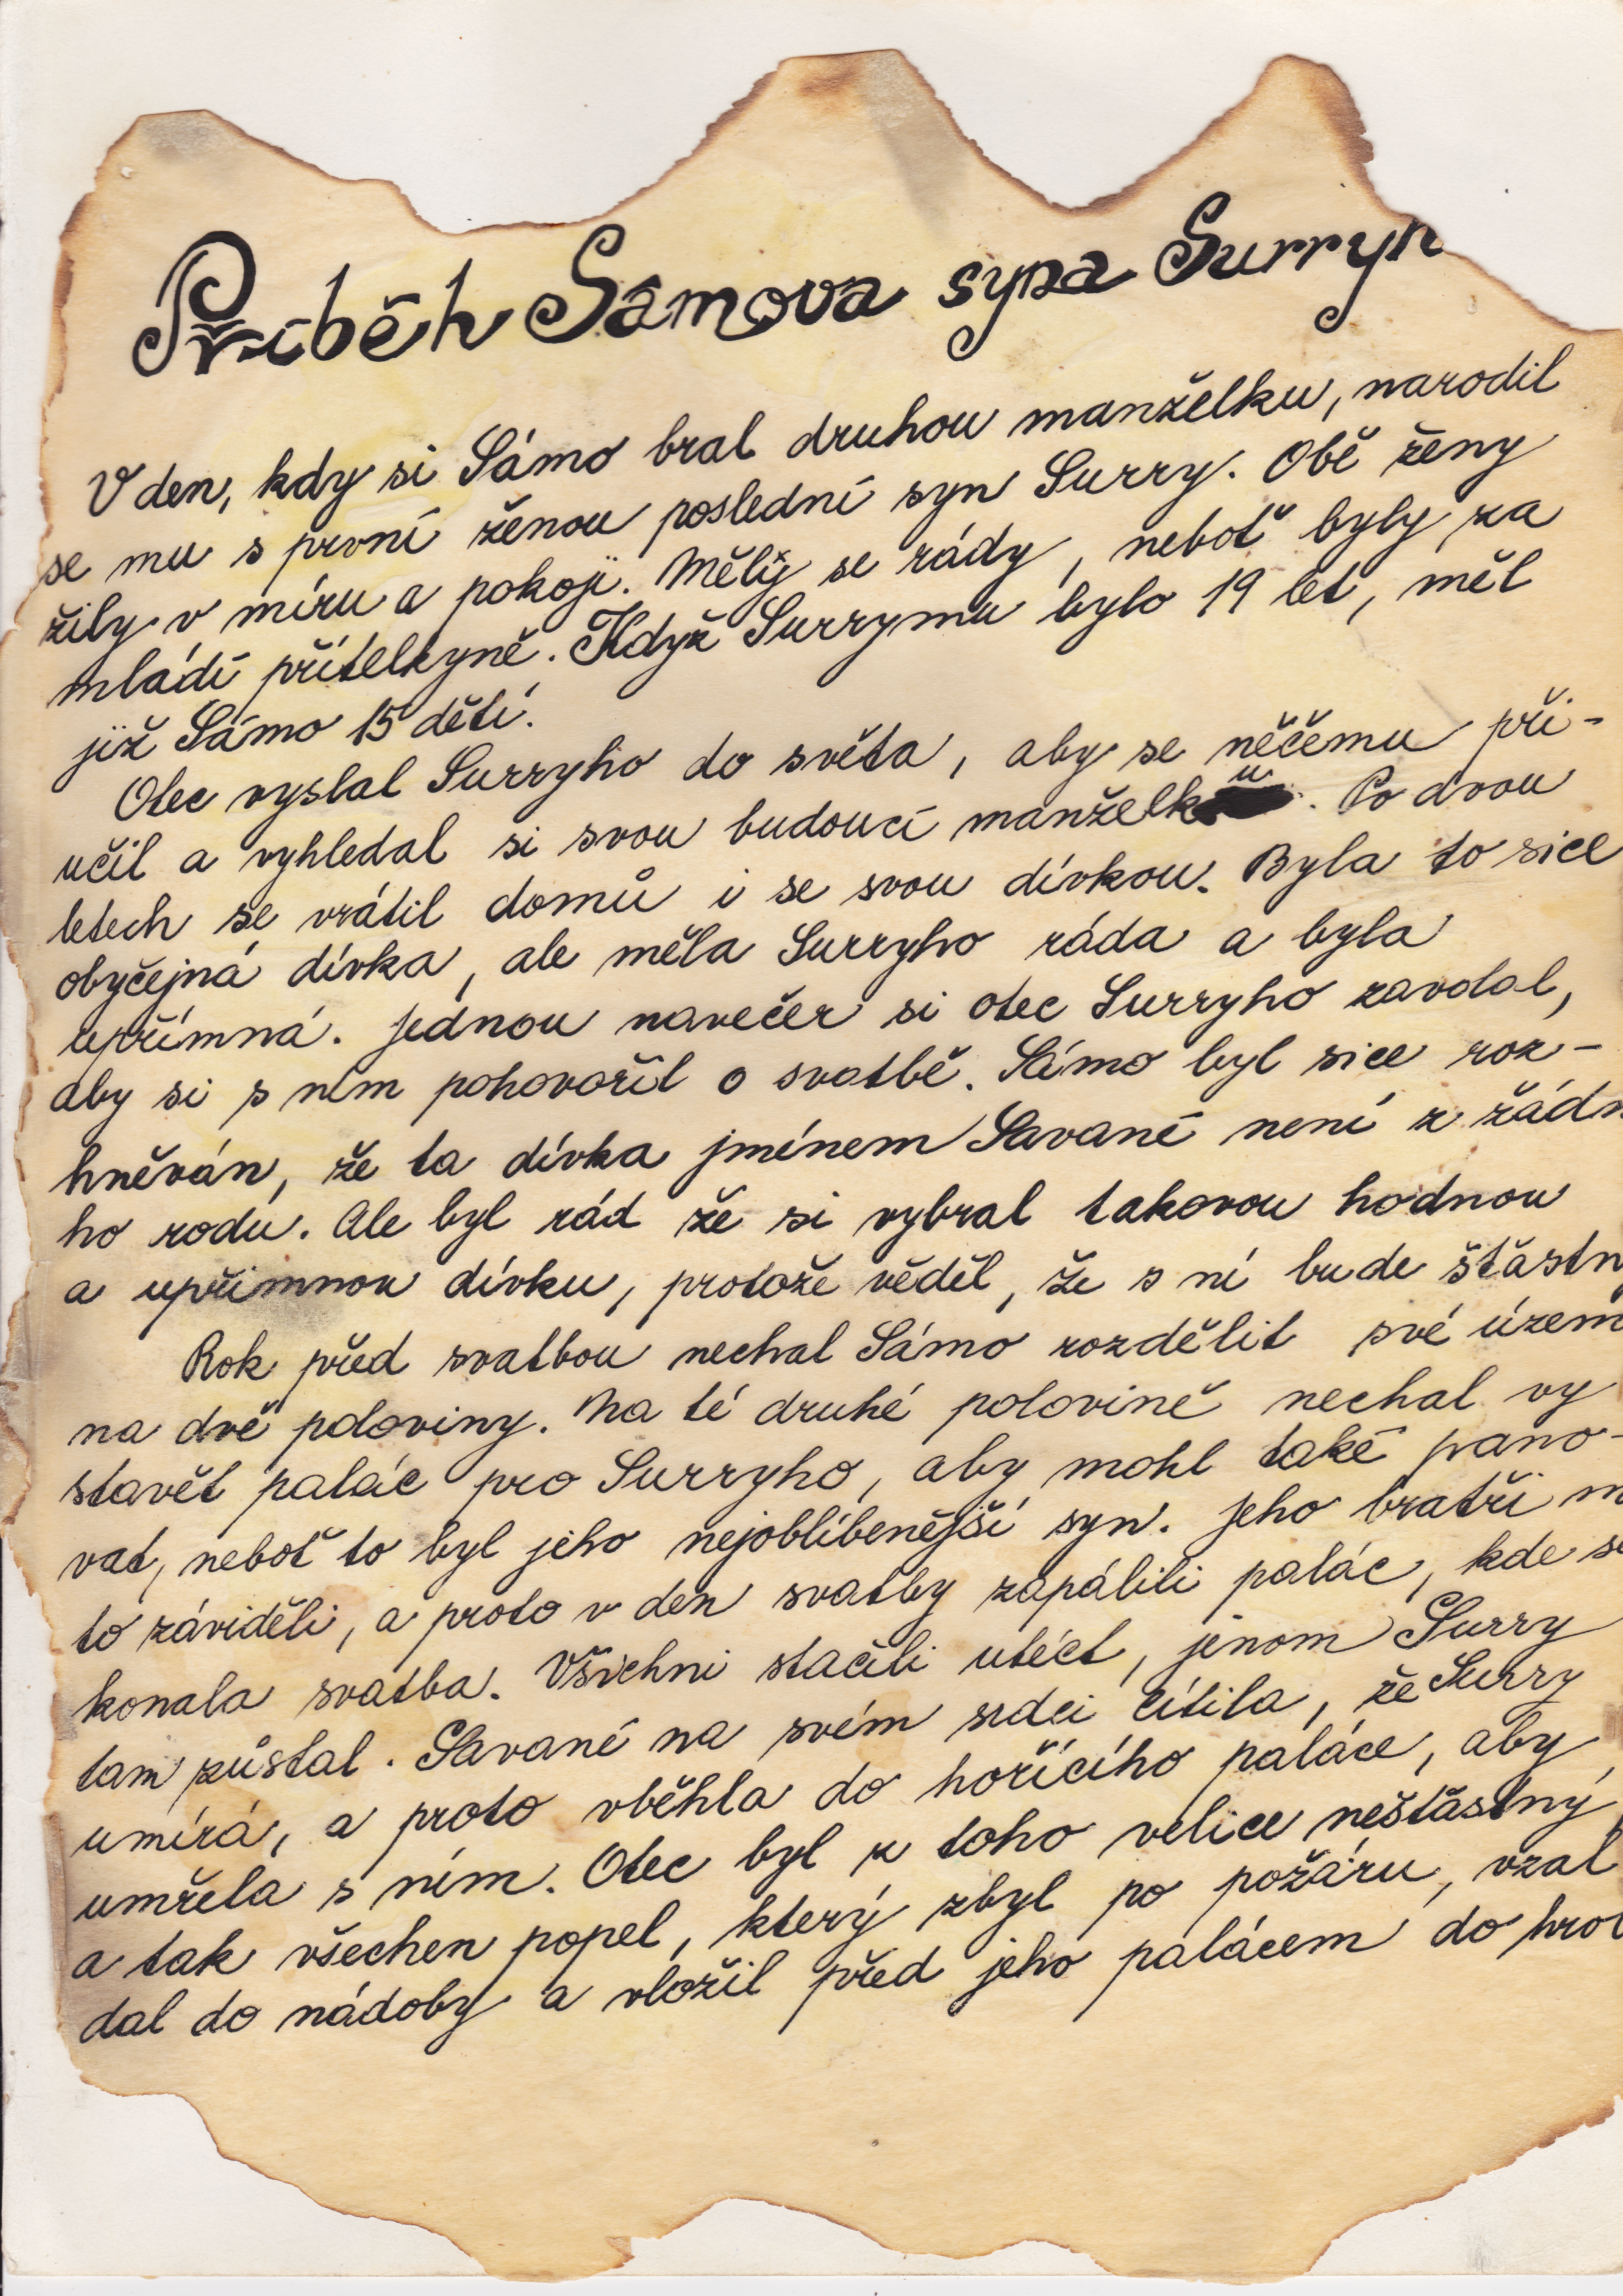 Příběh Sámova syna Surryh
V den, kdy si Sámo bral druhou manželku, narodil
se mu s první ženou poslední syn Surry. Obě ženy
žily v míru a pokoji. Měly se rády, neboť byly za
mládí přítelkyně. Když Surrymu bylo 19 let, měl
již Sámo 15 dětí.
Otec vyslal Surryho do světa, aby se něčemu při-
učil a vyhledal si svou budoucí manželku. Po dvou
letech se vrátil domů i se svou dívkou. Byla to sice
obyčejná dívka, ale měla Surryho ráda a byla
upřímná. Jednou navečer si otec Surryho zavolal,
aby si s ním pohovořil o svatbě. Sámo byl sice roz-
hněván, že ta dívka jménem Savané není z žádn
ho rodu. Ale byl rád že si vybral takovou hodnou
a upřimnou dívku, protože věděl, že s ní bude šťastn
Rok před svatbou nechal Sámo rozdělit své územ
na dvě poloviny. Na té druhé polovině nechal vy
stavět palác pro Surryho, aby mohl také pano-
vat, neboť to byl jeho nejoblíbenější syn. Jeho bratři m
to záviděli, a proto v den svatby zapálili palác, kde se
konala svatba. Všichni stačili utéct, jenom Surry
tam zůstal. Savané na svém srdci cítila, že Surry
umírá, a proto vběhla do hořícího paláce, aby
umřela s ním. Otec byl z toho velice nešťastný,
a tak všechen popel, který zbyl po požáru, vzal
dal do nádoby a vložil před jeho palácem do hrob